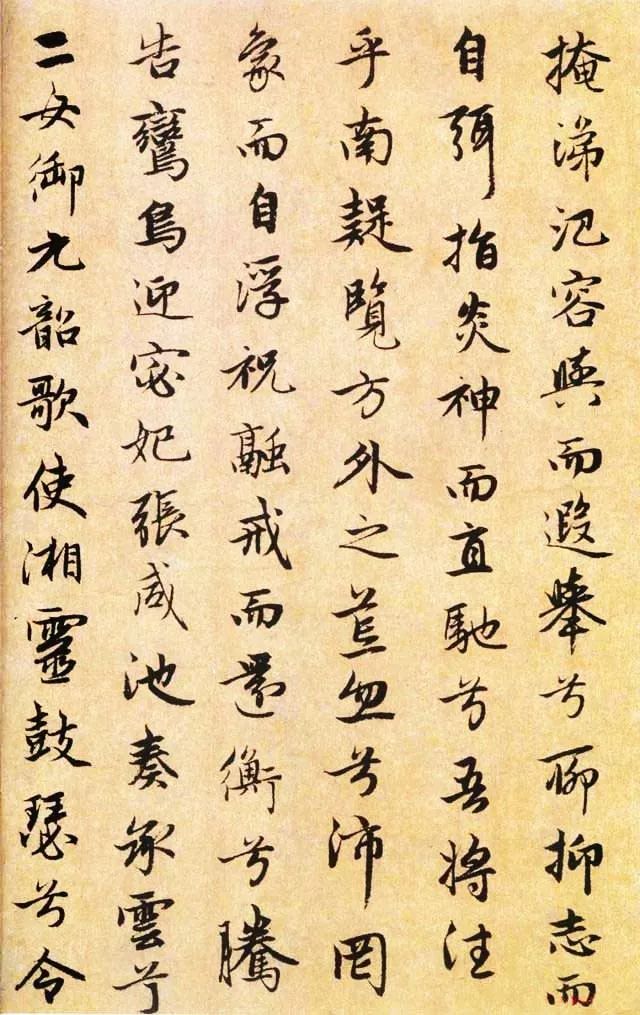 掩涕汜容與而遐舉兮聊抑志而
自弭指炎神而直馳兮吾將往
乎南疑覽方外之荒忽兮沛罔
象而自浮祝融戒而還衡兮騰
告鸞鳥迎宓妃張咸池奏承雲兮
二女御九韶歌使湘靈鼓瑟兮令